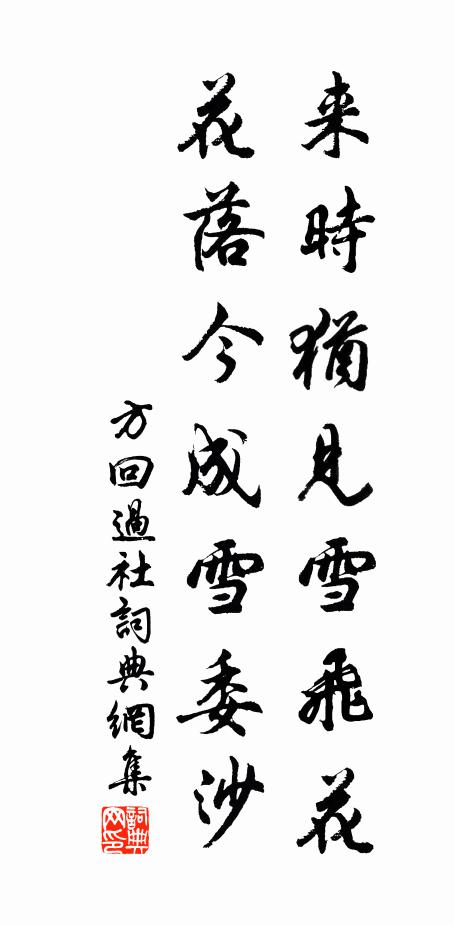 来時猶見雪飛花
花落今成雪委沙
方回過社詞典網集
詞典
网印